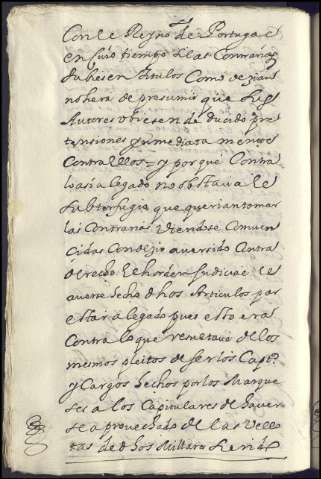 Con el Reyno de Portugal
en cuio tiempo si las Contrarias
tubiesen titulos Como dezian
no hera de presumir que sus
Autores ubiesen deducido pre
tensiones y umediasa menos
Contra ellos = y porque Contra
lo asi alegado no obstava el
subterfugio que querian tomar
las Contrarias viendose Conven
cidas Con dezir averido Contra
derecho el horden Judicial el
averse hecho dhos Articulos por
estar alegado pues esto era
Contra lo que remetava de los
mesmos pleitos de ser los Capos
y Cargos hechos por los Marque
ses a los Capitulares de haver
se aprovechado de las Vello
tas de dhos Millares en de